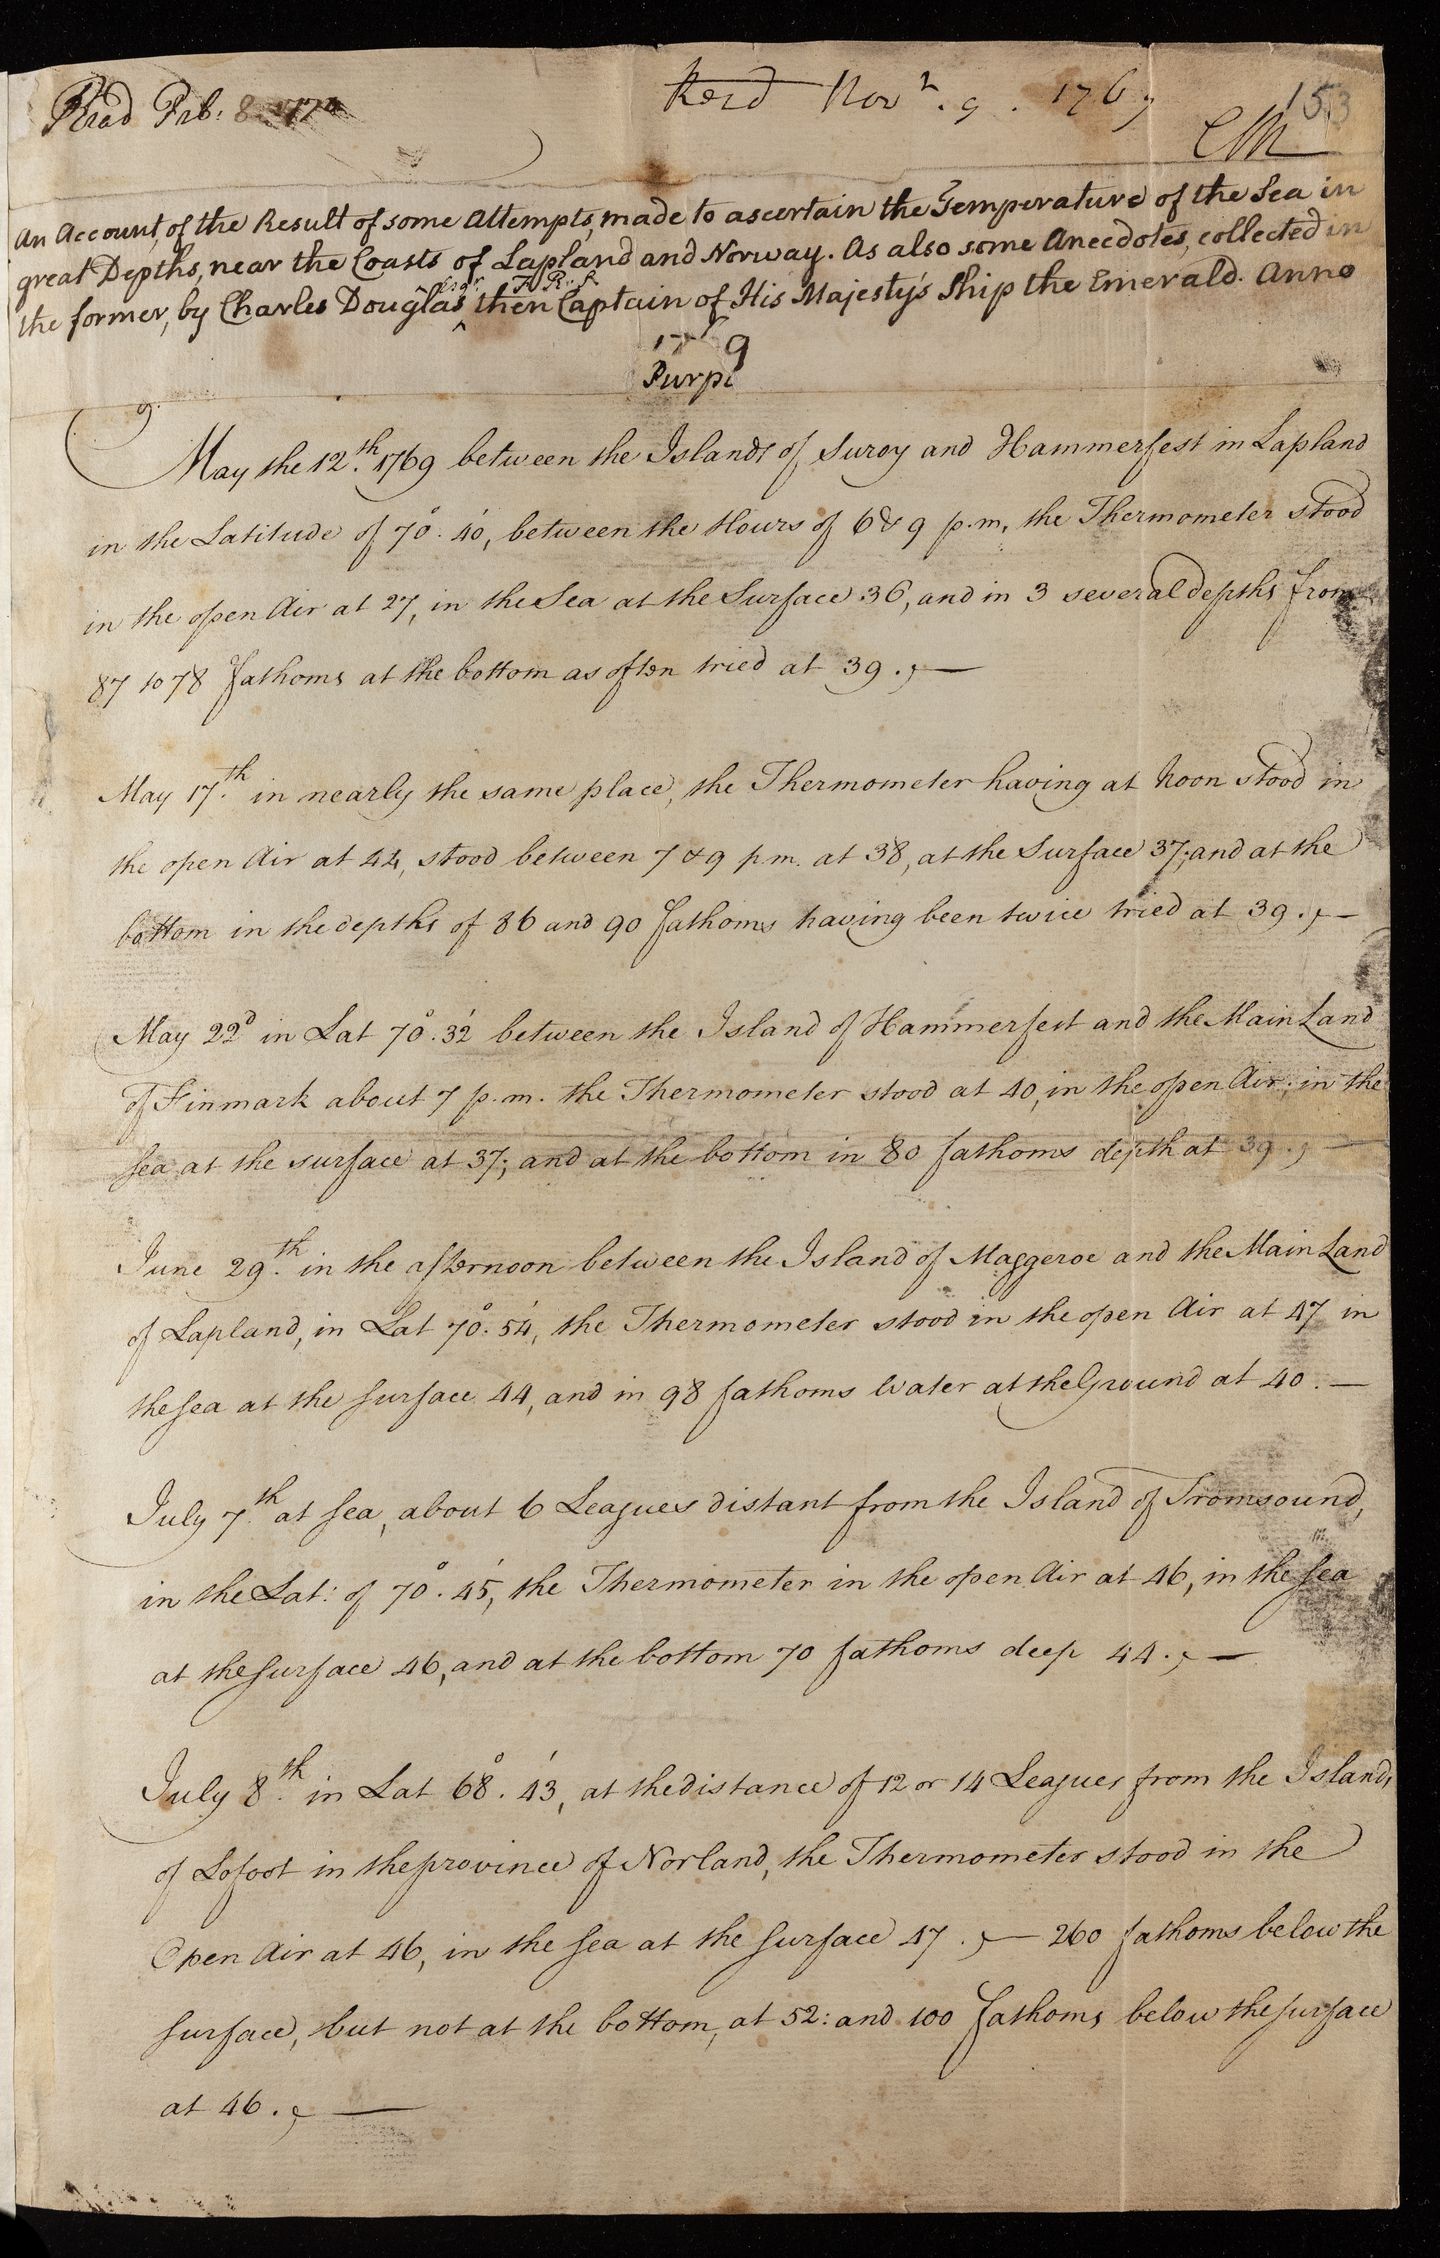 Read Feb: 8 1770
Read Nov.r 9. 1769
153
CM
An Account, of the Result of some Attempts, made to ascertain the Temperature of the Sea in
great Depths, near the Coasts of Lapland and Norway. As also some Anecdotes, collected in
the former, by Charles Douglas ^ Esqr. F. R. S. then Captain of His Majesty's Ship the Emerald. Anno
1769
Purpl
May the 12.th 1769 between the Islands of Suroy and Hammerfest in Lapland
in the Latitude of 70°. 40', between the Hours of 6 & 9 p.m, the Thermometer stood
in the open Air at 27, in the Sea at the Surface 36, and in 3 several depths from
87 to 78 fathoms at the bottom as often tried at 39. —
May 17.th in nearly the same place, the Thermometer having at Noon stood in
the open Air at 44, stood between 7 & 9 p.m. at 38, at the Surface 37; and at the
bottom in the depths of 86 and 90 fathoms having been twice tried at 39. —
May 22d in Lat 70°. 32' between the Island of Hammerfest and the Main Land
of Finmark about 7 p.m. the Thermometer stood at 40, in the open Air; in the
sea at the surface at 37; and at the bottom in 80 fathoms depth at 39. —
June 29.th in the afternoon between the Island of Maggeroe and the Main Land
of Lapland, in Lat 70°. 54', the Thermometer stood in the open Air at 47 in
the sea at the surface 44, and in 98 fathoms Water at the Ground at 40. —
July 7.th at sea, about 6 Leagues distant from the Island of Tromsound,
in the Lat: of 70°. 45', the Thermometer in the open Air at 46, in the sea
at the surface 46, and at the bottom 70 fathoms deep 44. —
July 8.th in Lat 68°. 43', at the distance of 12 or 14 Leagues from the Islands
of Lofoot in the province of Norland, the Thermometer stood in the
Open Air at 46, in the sea at the surface 47. — 260 fathoms below the
surface, but not at the bottom, at 52: and 100 fathoms below the surface
at 46. —